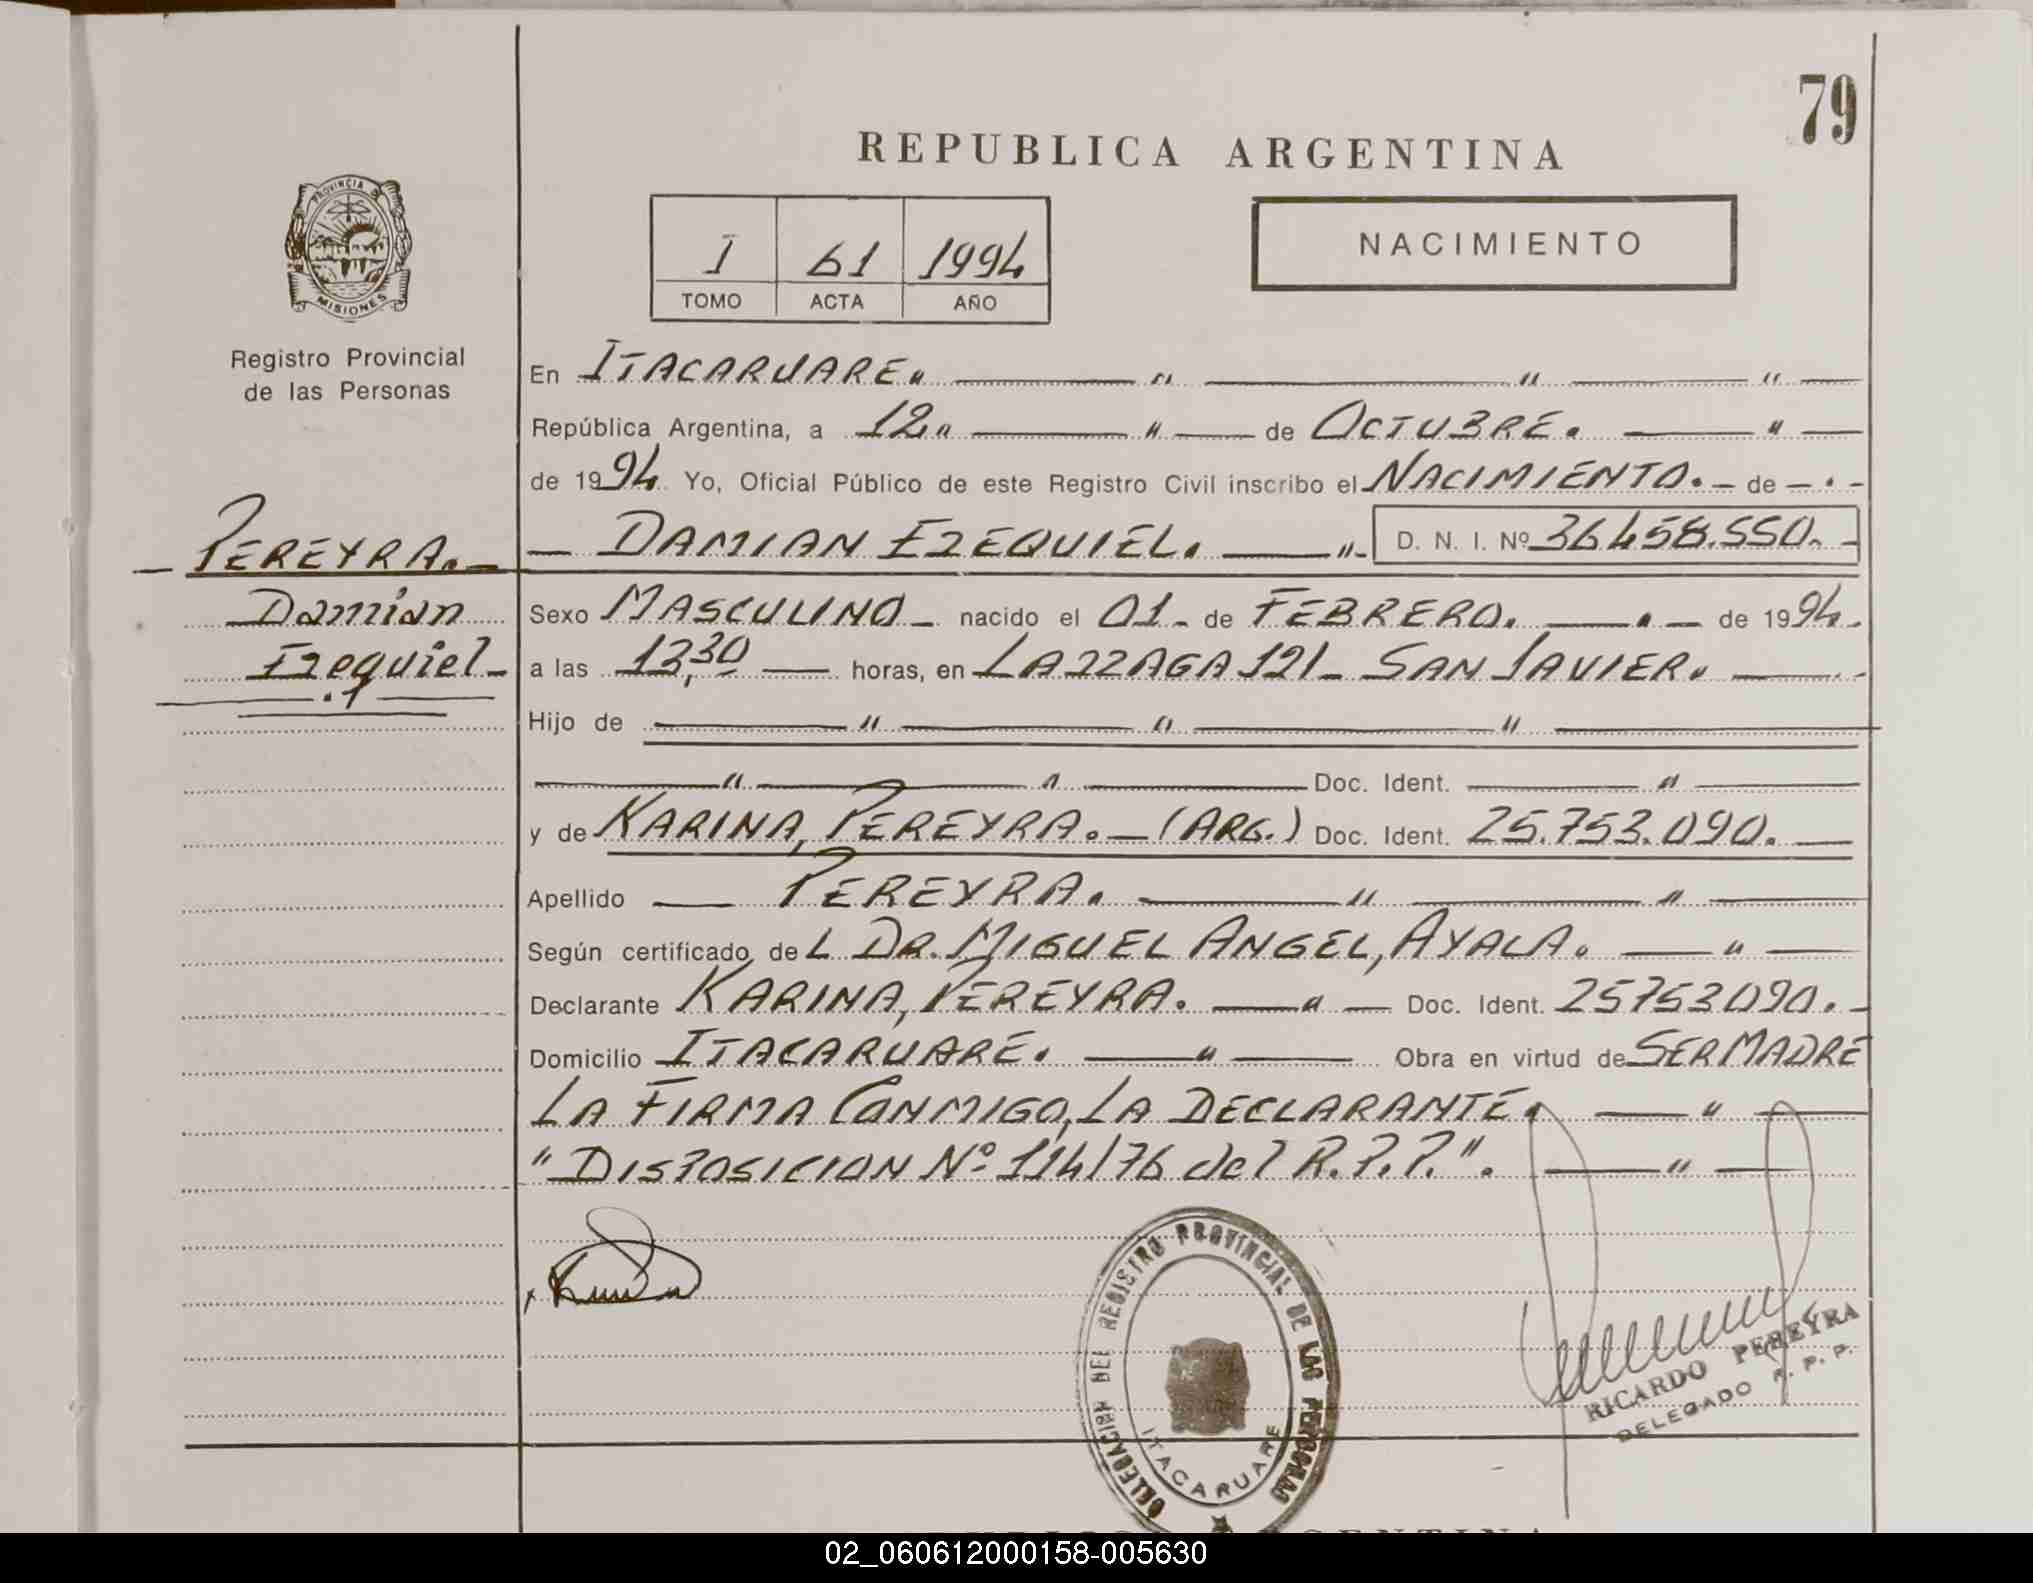 79
REPUBLICA ARGENTINA
PROVINCIA DE
MISIONES
Registro Provincial
de las Personas
I 61 1994
TOMO ACTA AÑO
NACIMIENTO
En ITACARUARE.
República Argentina, a 12 de OCTUBRE.
de 1994 Yo, Oficial Público de este Registro Civil inscribo el NACIMIENTO. de
PEREYRA.
Damian
Ezequiel
DAMIAN EZEQUIEL. D. N. I. Nº 36458.550.
Sexo MASCULINO nacido el 01 de FEBRERO. de 1994
a las 13,30 horas, en LAZZAGA 121 SAN JAVIER.
Hijo de
Doc. Ident.
y de KARINA, PEREYRA. (ARG.) Doc. Ident. 25.753.090.
Apellido PEREYRA.
Según certificado de L DR. MIGUEL ANGEL, AYALA.
Declarante KARINA, PEREYRA. Doc. Ident. 25753090.
Domicilio ITACARUARE. Obra en virtud de SER MADRE
LA FIRMA CONMIGO, LA DECLARANTE.
"DISPOSICION Nº 114/76 del R.P.P.".
DELEGACION DEL REGISTRO PROVINCIAL DE LAS PERSONAS
ITACARUARE
RICARDO PEREYRA
DELEGADO R. P. P.
02_060612000158-005630